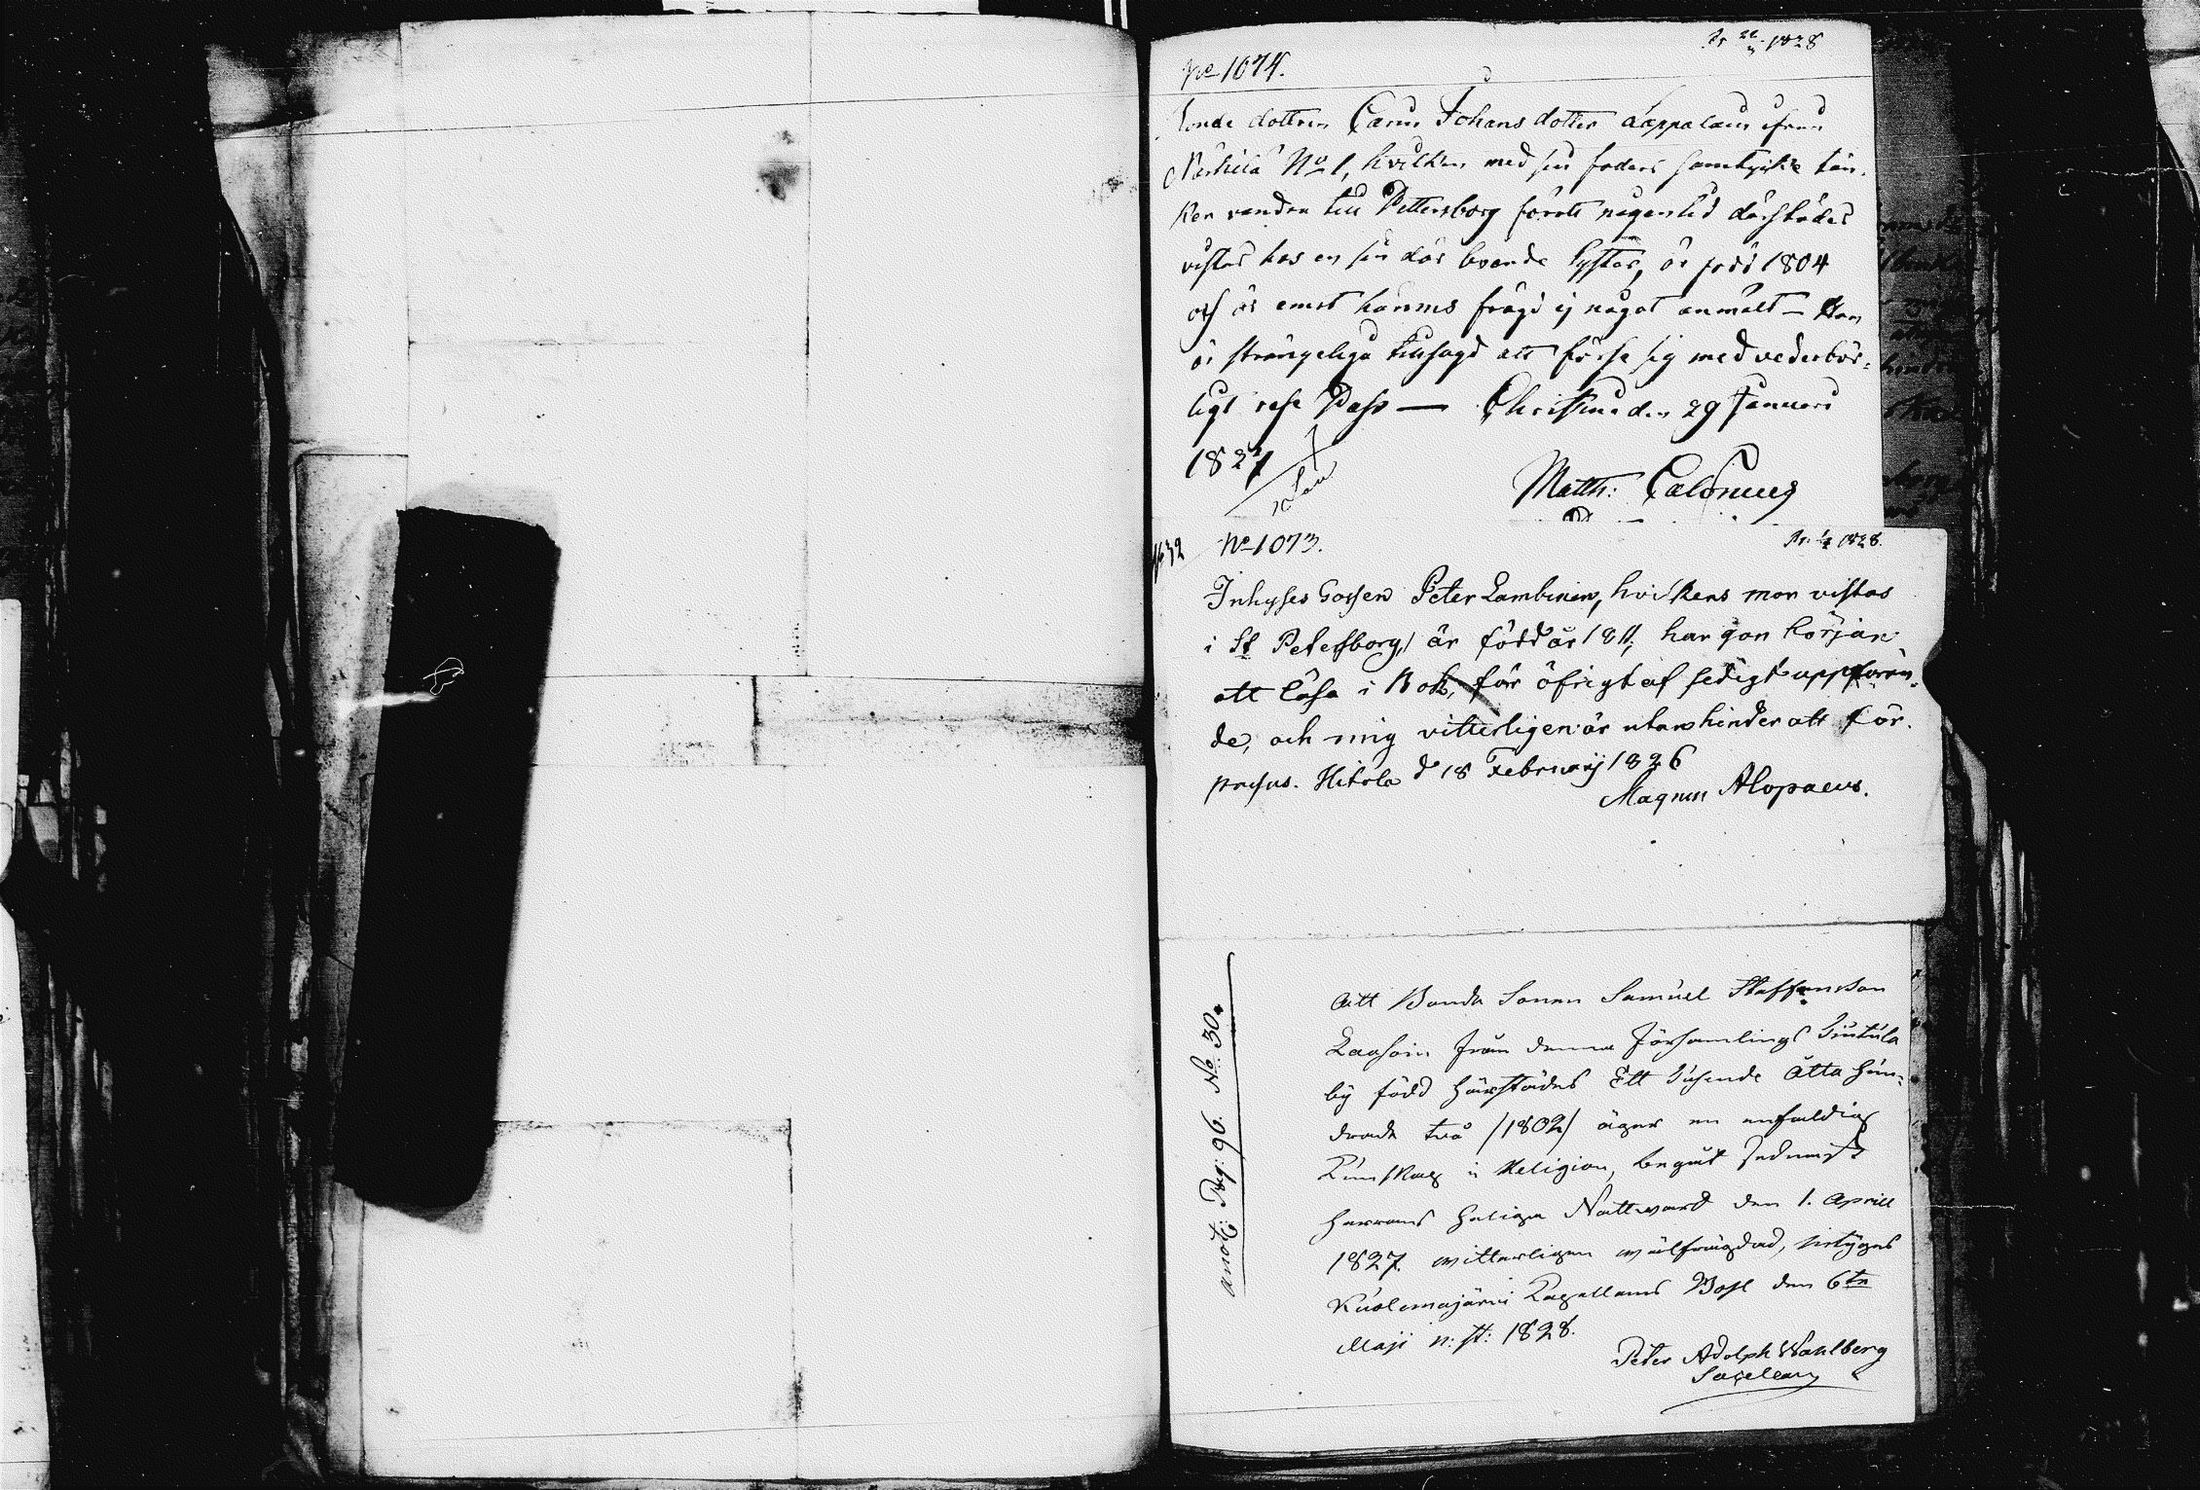 No 1074.
1828
Bonde dottren Carin Johans dotter Lappalain ifrån
No 1, hvilken med sin faders samtycke tän-
ker vandra till Pettersborg föratt någon tid därstädes
vistas hos en sin där boende Syster, är född 1804
och är emot hännes frägd ej något anmält — Hon
är strängeliga tillsagd att förse sig med vederbör-
ligt rese Pass — Christina den 29 Januari
1827
Matth: Calonius
No 1073.
1828.
Inhyses Gossen Peter Lambinen, hvilkens mor vistas
i St Petersborg, är född år 1811, har gon börjän
att läsa i Bok, för öfrigt af sedigt uppföran-
de, och mig vitterligen är utan hinder att för-
passas. Hitola d 18 Februarij 1826
Magnus Alopaeus.
anot: Pag: 96. No. 30.
Att Bonde Sonen Samuel Staffansson
från denna Församlings
by född härstädes Ett tusende Åtta hun-
drade två /1802/ äger en enfaldig
Kunskap i Religion, begått sednast
Herrans Heliga Nattvard den 1. Aprill
1827. witterligen wälfrägdad, betygas
Kuolemajärvi Capellans Bohl den 6te
Maji n: st: 1828.
Peter Adolph Wahlberg
Sacellan